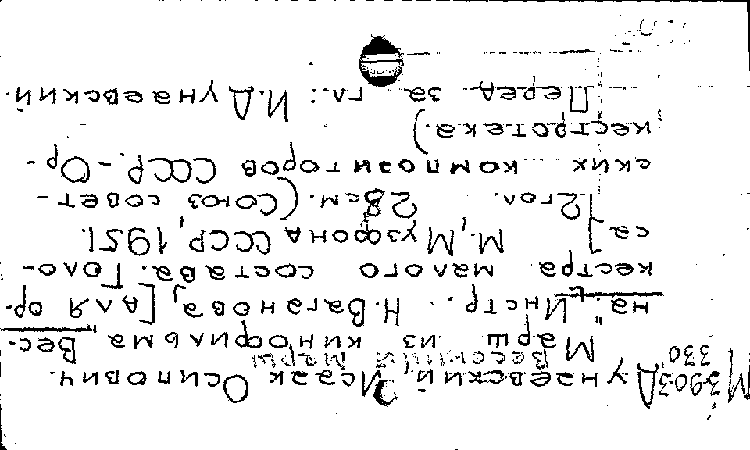 М3903
330
Дунаевский, Исаак Осипович.
Весенний марш
Марш из кинофильма "Вес-
на". Инстр. Н. Ваганова, [для ор-
кестра малого состава. Голо-
са] М., Музфонд СССР, 1951.
12 гол. 28 см. (Союз совет-
ских композиторов СССР. - Ор-
кестротека.)
Перед загл.: И. Дунаевский.